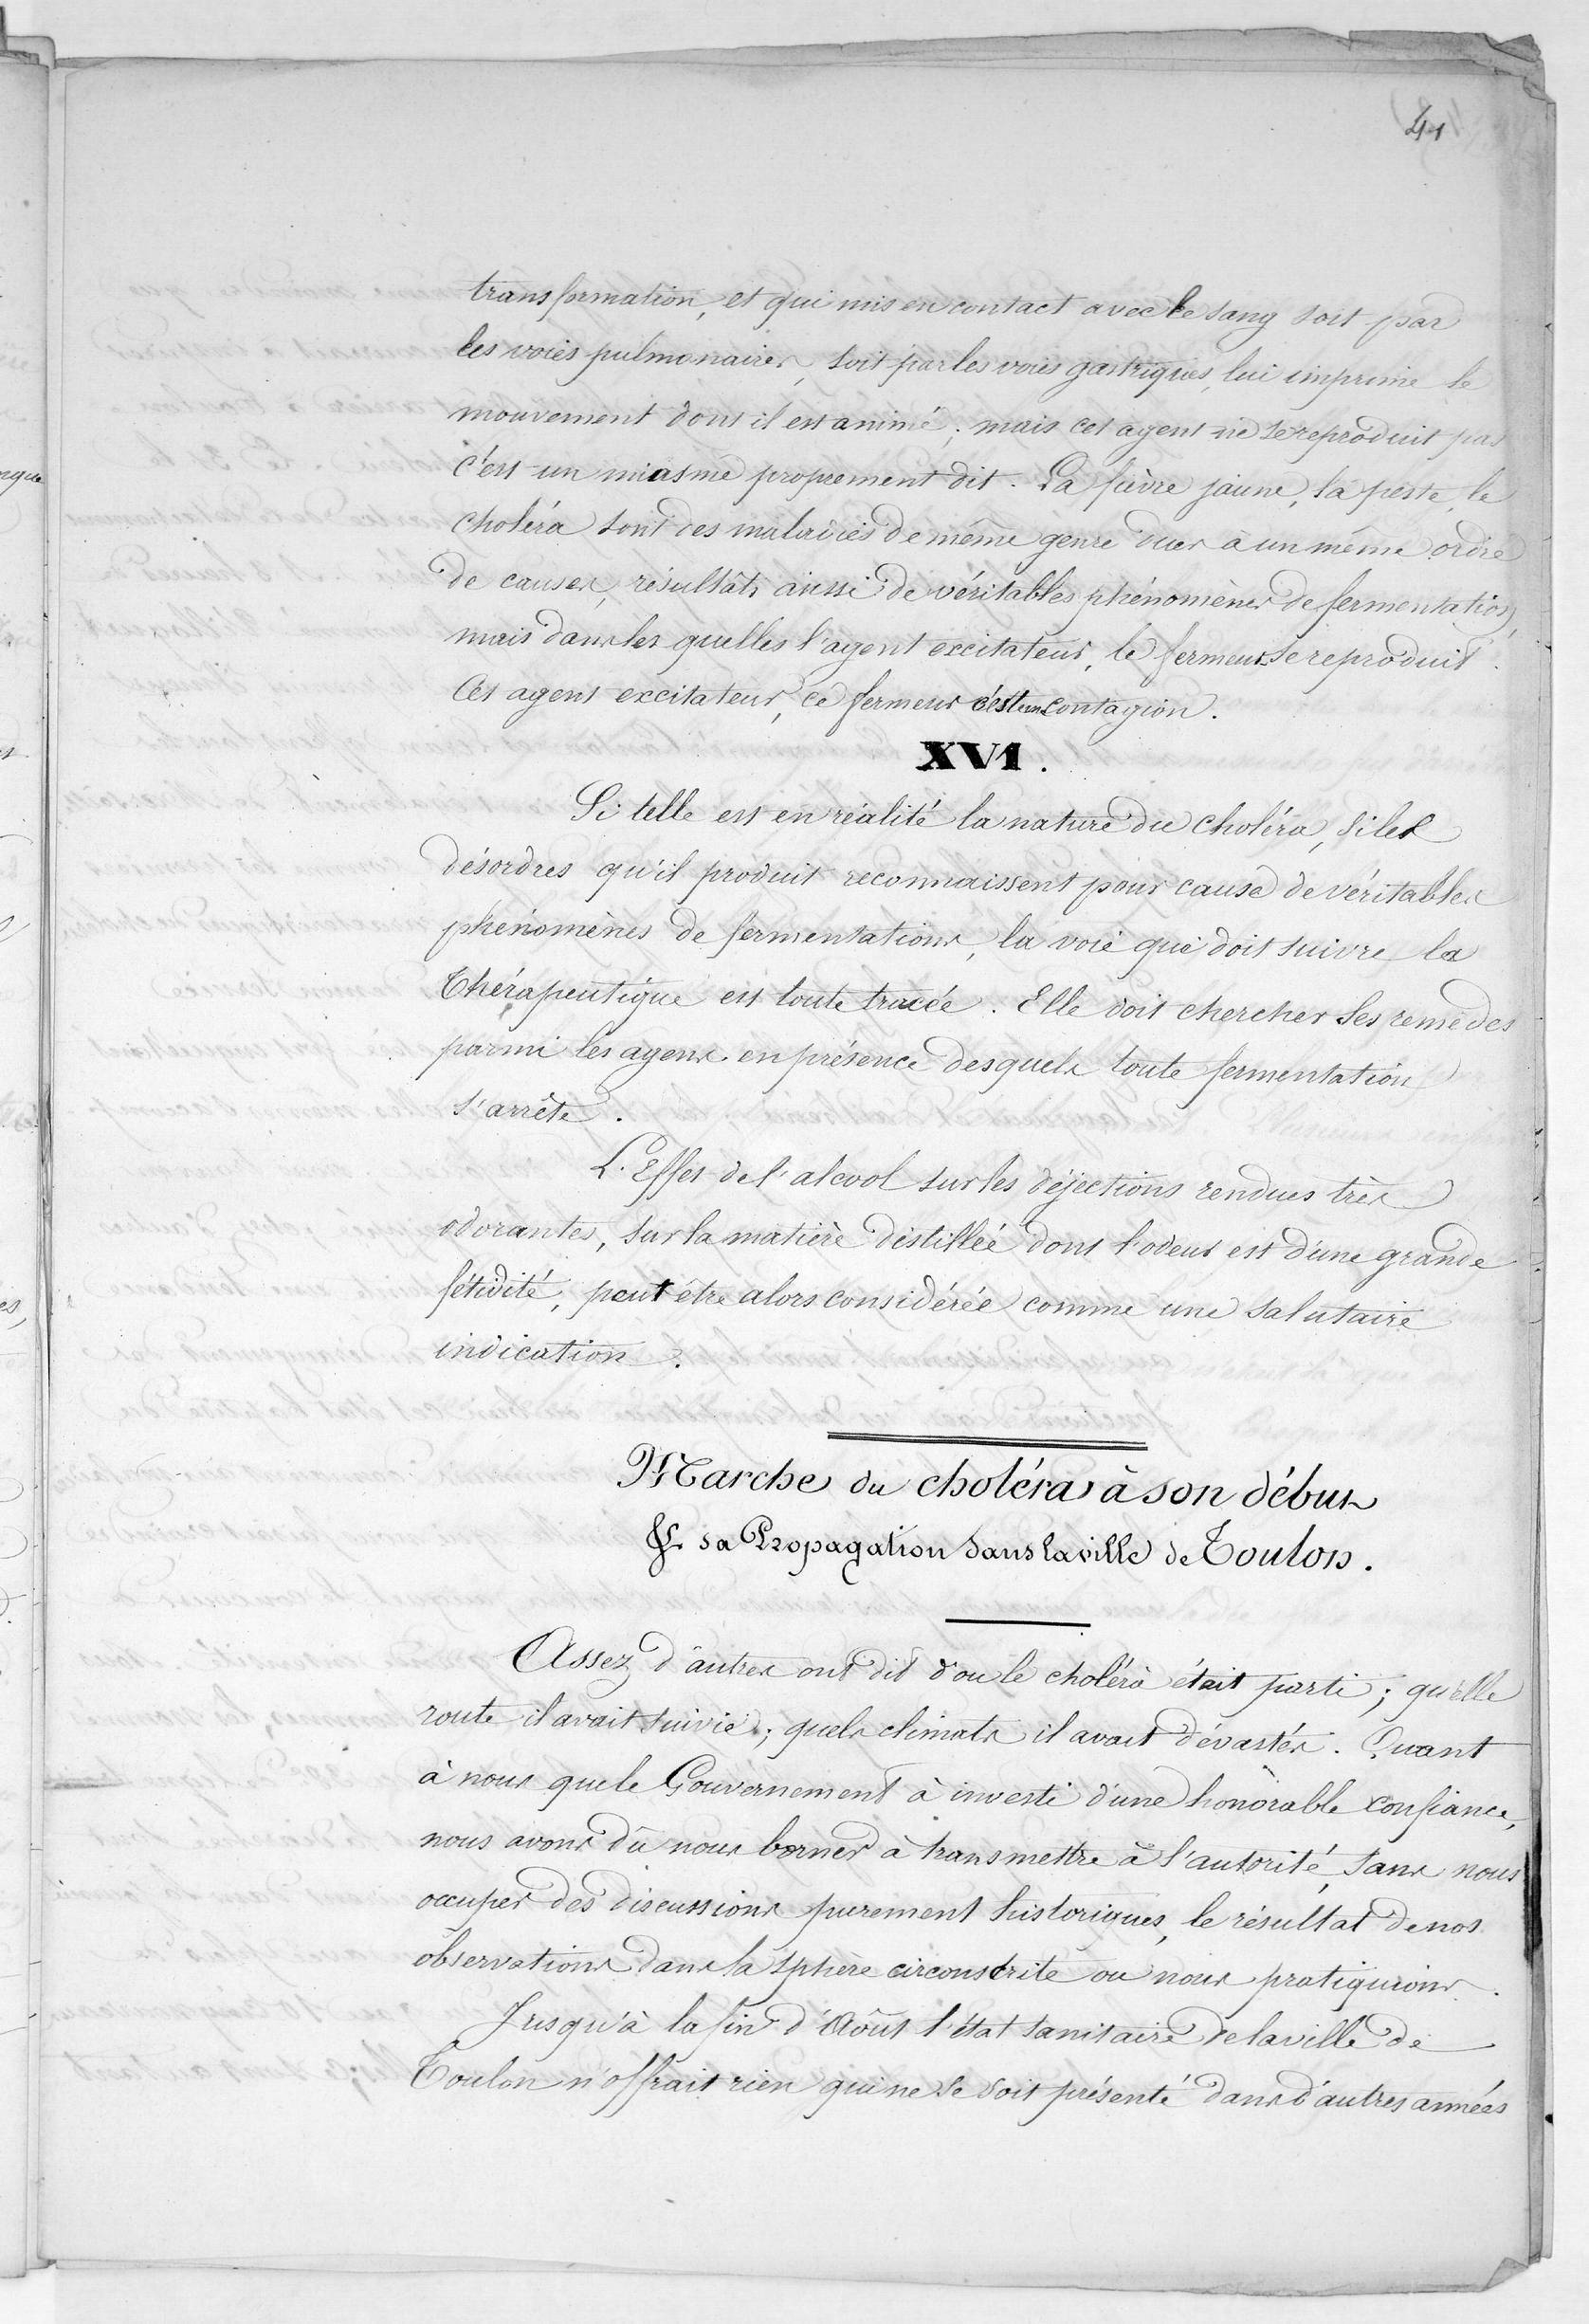 41
transformation, et qui mis en contact avec le sang soit par
les voies pulmonaires, soit par les voies gastriques, lui imprime le
mouvement dont il est animé; mais cet agent ne se reproduit pas
c'est un miasme proprement dit. La fièvre jaune, la peste, le
choléra sont des maladies de même genre dues à un même ordre
de causes, résultats aussi de véritables phénomènes de fermentation,
mais dans les quelles l'agent excitateur, le ferment se reproduit.
Cet agent excitateur, ce ferment c'est un contagion.
XVI.
Si telle est en réalité la nature du choléra, si les
désordres qu'il produit reconnaissent pour cause de véritables
phénomènes de fermentations, la voie que doit suivre la
Thérapeutique est toute tracée. Elle doit chercher ses remèdes
parmi les agens en présence desquels toute fermentation
s'arrête.
L'Effet de l'alcool sur les déjections rendues très
odorantes, sur la matière distillée dont l'odeur est d'une grande
fétidité, peut être alors considérée comme une salutaire
indication.
Marche du choléra à son début
& sa Propagation dans la ville de Toulon.
Assez d'autres ont dit d'ou le choléra était parti; quelle
route il avait suivie; quels climats il avait dévastés. Quant
à nous que le Gouvernement à investi d'une honorable confiance,
nous avons dû nous borner à transmettre à l'autorité, sans nous
occuper des discussions purement historiques, le résultat de nos
observations dans la sphère circonscrite ou nous pratiquions.
Jusqu'à la fin d'Août l'état sanitaire de la ville de
Toulon n'offrait rien qui ne se soit présenté dans d'autres années